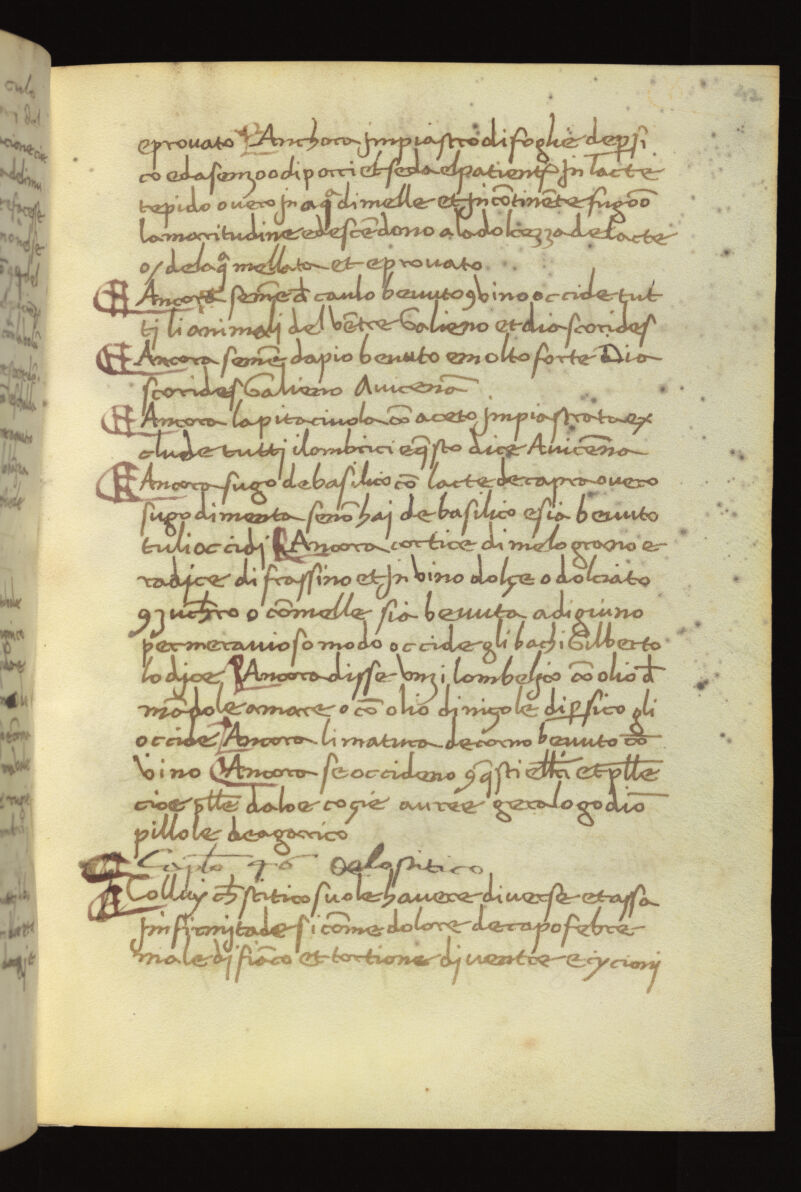 42
eprovato Anchora Jmpiastro di foglie deꝑsi
co edasenzoo di porci et seda elpatiente Jn lacte
tepido overo Jn aqᵃ di melle et Jncōtinēte fugōō
lamaritudine e descēdono a la dolcezza de lacte
o/ delaqᵃ mellata et e provato
Ancora semēe đ caulo bevuto ꝯ vino occide tut
ti li animalj del vētre Galieno et diascorides
Ancora semēe dapio bevuto e molto forte Dia
scorides Galieno Avicenā
Ancora lapitacivola cō aceto Jmpiastrata ex
clude tutti ilombrici e qsto dice Avicēna
Ancora sugo de basilico cō lacte de capra overo
sugo di menta se nō haj de basilico e sia bevuto
tuli occidj Ancora cortice di melo grano e
radice di frassino et Jn vino dolçe o dolciato
ꝯ zuchro o cōmelle sia bevuta a digiuno
per meravioso modo occide gli bachi Gilberto
lo djce Ancora disse unzi lombelico cō olio đ
mādole amare o cō olio dj nizole dj ꝑsico gli
occide Ancora limatura de corno bevuto cō
vino Ancora se occideno ꝯ qsti ellri et plle
cioe plle daloe cogie auree geralogodiō
pillole de agarico
Caplo 46 Delo stitico
Collui ch stitico suole havere diverse et assa
Jnfirmjtade si cōme dolore de capo febre
male dj fiāco et tortione dj ventre e icycionj